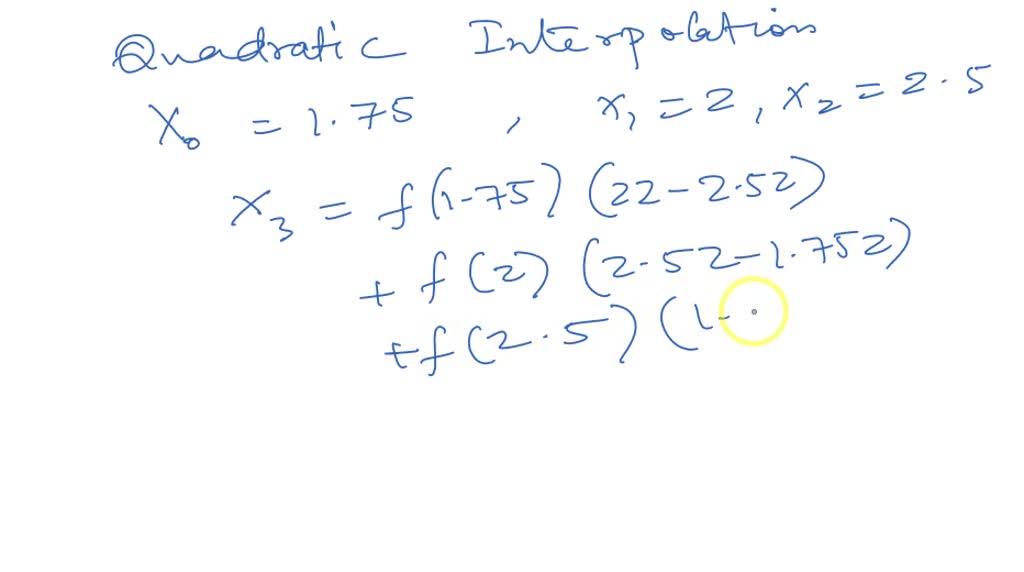 Quadratic Interpolation
X₀ = 1.75 , x₁ = 2 , x₂ = 2.5
x₃ = f(1-75) (22-2.52)
+ f(2) (2.52-1.752)
+f(2.5) (1-